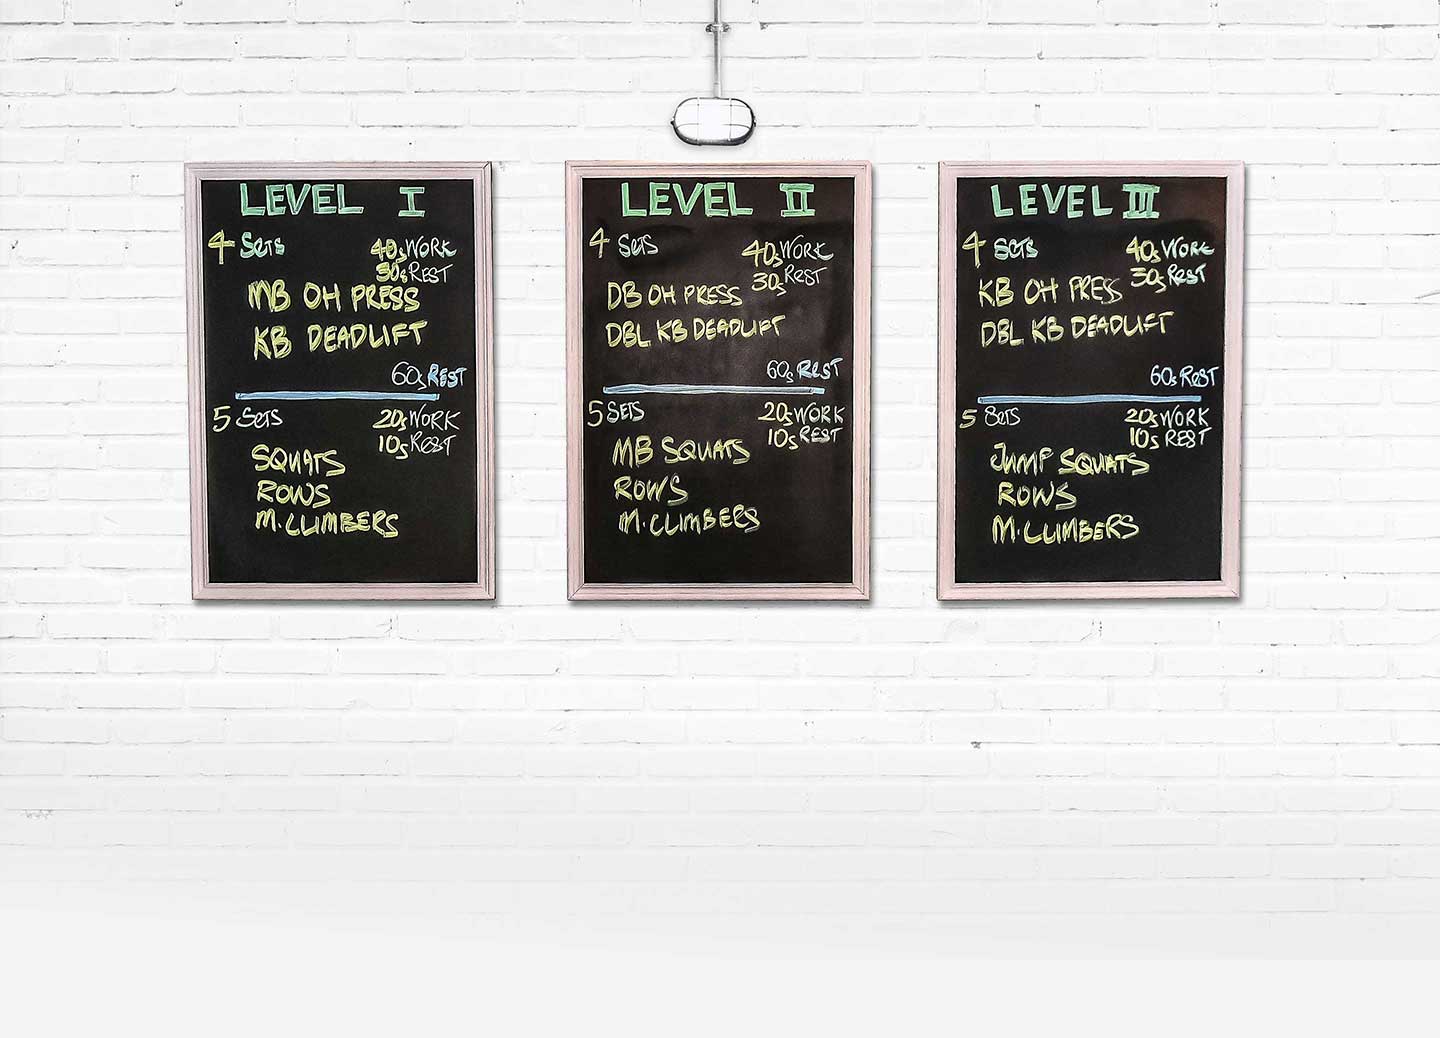 LEVEL I
4 SETS 40s WORK
30s REST
MB OH PRESS
KB DEADLIFT
60s REST
5 SETS 20s WORK
10s REST
SQUATS
ROWS
M. CLIMBERS
LEVEL II
4 SETS 40s WORK
30s REST
DB OH PRESS
DBL KB DEADLIFT
60s REST
5 SETS 20s WORK
10s REST
MB SQUATS
ROWS
M. CLIMBERS
LEVEL III
4 SETS 40s WORK
30s REST
KB OH PRESS
DBL KB DEADLIFT
60s REST
5 SETS 20s WORK
10s REST
JUMP SQUATS
ROWS
M. CLIMBERS